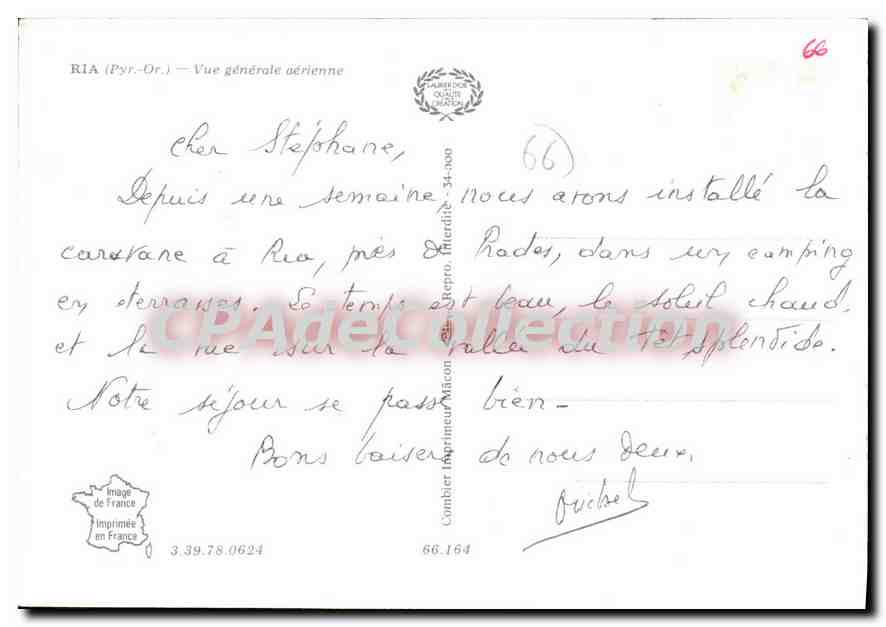 66
RIA (Pyr.-Or.) — Vue générale aérienne
LAURIER D'OR
QUALITÉ
CRÉATION
66
Cher Stéphane,
Depuis une semaine, nous avons installé la
caravane à Ria, près de Prades, dans un camping
en terrasses. Le temps est beau, le soleil chaud,
et la vue sur la vallée du Têt splendide.
Notre séjour se passe bien -
Bons baisers de nous deux.
Michel
CPAdeCollection
Combier Imprimeur Mâcon Repro. Interdite - 34-800
Image
de France
Imprimée
en France
3.39.78.0624
66.164